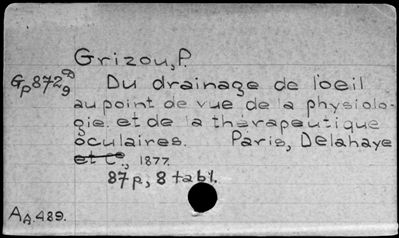 Grizou, P.
Gp 872 9 a)
Du drainage de l'oeil
au point de vue de la physiolo-
gie et de la thérapeutique
oculaires. Paris, Delahaye
et Cº, 1877.
87 p, 8 tabl.
AA.489.